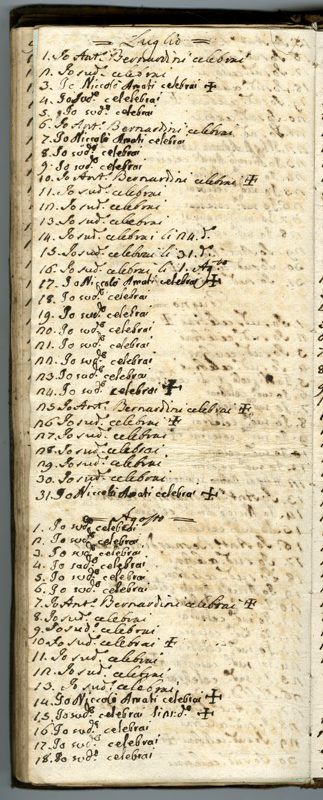 = Luglio =
1. Io Ant. Bernardini celebrai
2. Io sud.º celebrai
3. Io Niccolò Amati celebrai ✠
4. Io sud.º celebrai
5. Io sud.º celebrai
6. Io Ant. Bernardini celebrai
7. Io Niccolò Amati celebrai
8. Io sud.º celebrai
9. Io sud.º celebrai
10. Io Ant. Bernardini celebrai ✠
11. Io sud.º celebrai
12. Io sud.º celebrai
13. Io sud.º celebrai
14. Io sud.º celebrai li 24. d.º
15. Io sud.º celebrai li 31. d.º
16. Io sud.º celebrai li 1. Ag.to
17. Io Niccolò Amati celebrai ✠
18. Io sud.º celebrai
19. Io sud.º celebrai
20. Io sud.º celebrai
21. Io sud.º celebrai
22. Io sud.º celebrai
23. Io sud.º celebrai
24. Io sud.º celebrai ✠
25. Io Ant. Bernardini celebrai ✠
26. Io sud.º celebrai ✠
27. Io sud.º celebrai
28. Io sud.º celebrai
29. Io sud.º celebrai
30. Io sud.º celebrai
31. Io Niccolò Amati celebrai ✠
Agosto =
1. Io sud.º celebrai
2. Io sud.º celebrai
3. Io sud.º celebrai
4. Io sud.º celebrai
5. Io sud.º celebrai
6. Io sud.º celebrai
7. Io Ant. Bernardini celebrai ✠
8. Io sud.º celebrai
9. Io sud.º celebrai
10. Io sud.º celebrai ✠
11. Io sud.º celebrai
12. Io sud.º celebrai
13. Io sud.º celebrai
14. Io Niccolò Amati celebrai ✠
15. Io sud.º celebrai ✠
16. Io sud.º celebrai
17. Io sud.º celebrai
18. Io sud.º celebrai